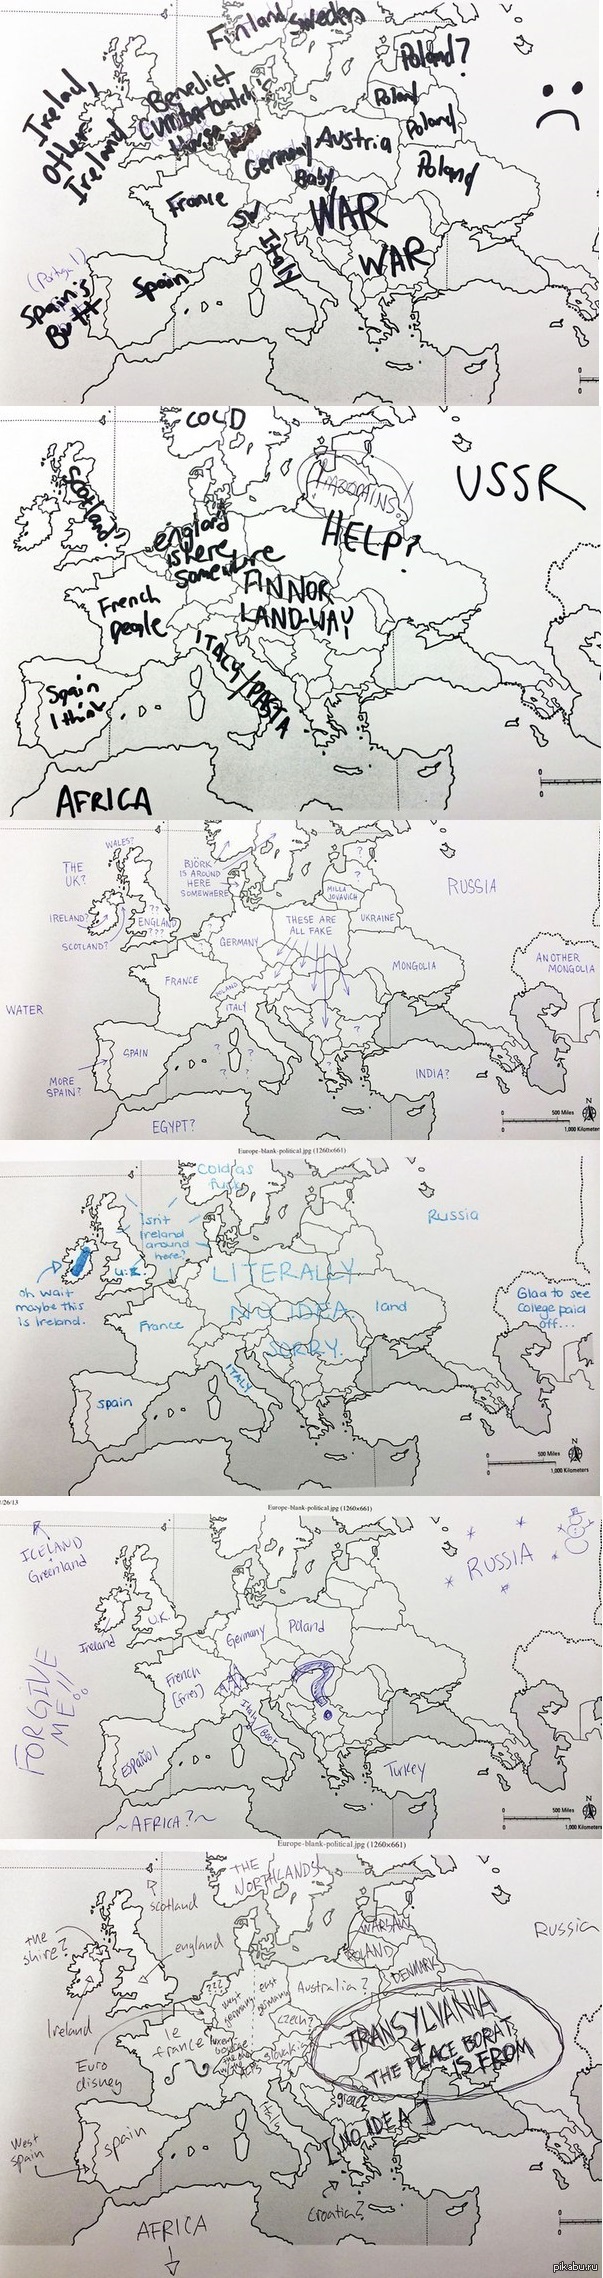 Finland Sweden
Poland?
Irelad,
Other
Ireland
Benedict
Cumberbatch's
House
Poland
Poland
Germany
Austria
Baby
Poland
France
SW
Italy
WAR
WAR
(Portugal)
Spain's
Butt
Spain
COLD
Scotland?
USSR
england
is here
somewhere
HELP?
French
people
FINNOR
LAND-WAY
ITALY/PASTA
Spain
I think
AFRICA
WALES?
THE
UK?
BJÖRK
IS AROUND
HERE
SOMEWHERE
?
?
MILLA
JOVAVICH
RUSSIA
IRELAND?
SCOTLAND?
??
ENGLAND
???
?
GERMANY
THESE ARE
ALL FAKE
UKRAINE
FRANCE
MONGOLIA
ANOTHER
MONGOLIA
WATER
ITALY
SPAIN
MORE
SPAIN?
?
?
?
?
?
?
INDIA?
EGYPT?
N
0 500 Miles
0 1,000 Kilometers
Europe-blank-political.jpg (1260×661)
Cold as
fuck
Isn't
Ireland
around
here?
Russia
U.K
oh wait
maybe this
is Ireland.
LITERALLY
NO IDEA.
SORRY.
land
France
Glad to see
College paid
off...
ITALY
Spain
N
0 500 Miles
0 1,000 Kilometers
/26/13
Europe-blank-political.jpg (1260×661)
ICELAND
Greenland
RUSSIA
U.K.
Ireland
Germany
Poland
FORGIVE
ME!!
French
[fries]
?
Italy/Boot
ESPAÑOL
Turkey
~AFRICA?~
N
0 500 Miles
0 1,000 Kilometers
Europe-blank-political.jpg (1260×661)
THE
NORTHLANDS
scotland
the
shire?
england
WARSAW
POLAND
DENMARK
Russia
Ireland
???
west
germany
east
germany
Australia?
Czech?
le
france
Euro
disney
slovakia
ALPS
TRANSYLVANIA
&
THE PLACE BORAT
IS FROM
greece
[NO IDEA]
Italy
West
spain
spain
Croatia?
AFRICA
pikabu.ru